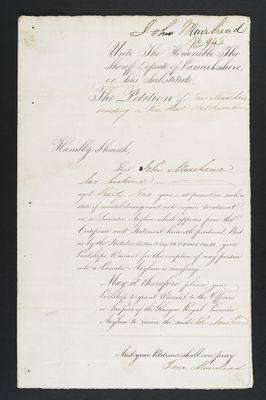 John Muirhead
No. 94
Unto The Honorable The
Sheriff Depute of Lanarkshire,
or his Substitute
The Petition of Jane Muirhead
residing in
Humbly Sheweth,
That John Muirhead
her husband
aged Thirty Nine years is at present in such a
state of mental derangement as to require treatment
in a Lunatic Asylum which appears from the
Certificate and Statement herewith produced. But
as by the Statutes your
Lordships Warrant for the reception of every person
into a Lunatic Asylum is necessary
May it therefore please your
Lordship to grant Warrant to the Officers
or keepers of the Glasgow Royal Lunatic
Asylum to receive the said John Muirhead
And your Petitioner shall ever pray
Jane Muirhead